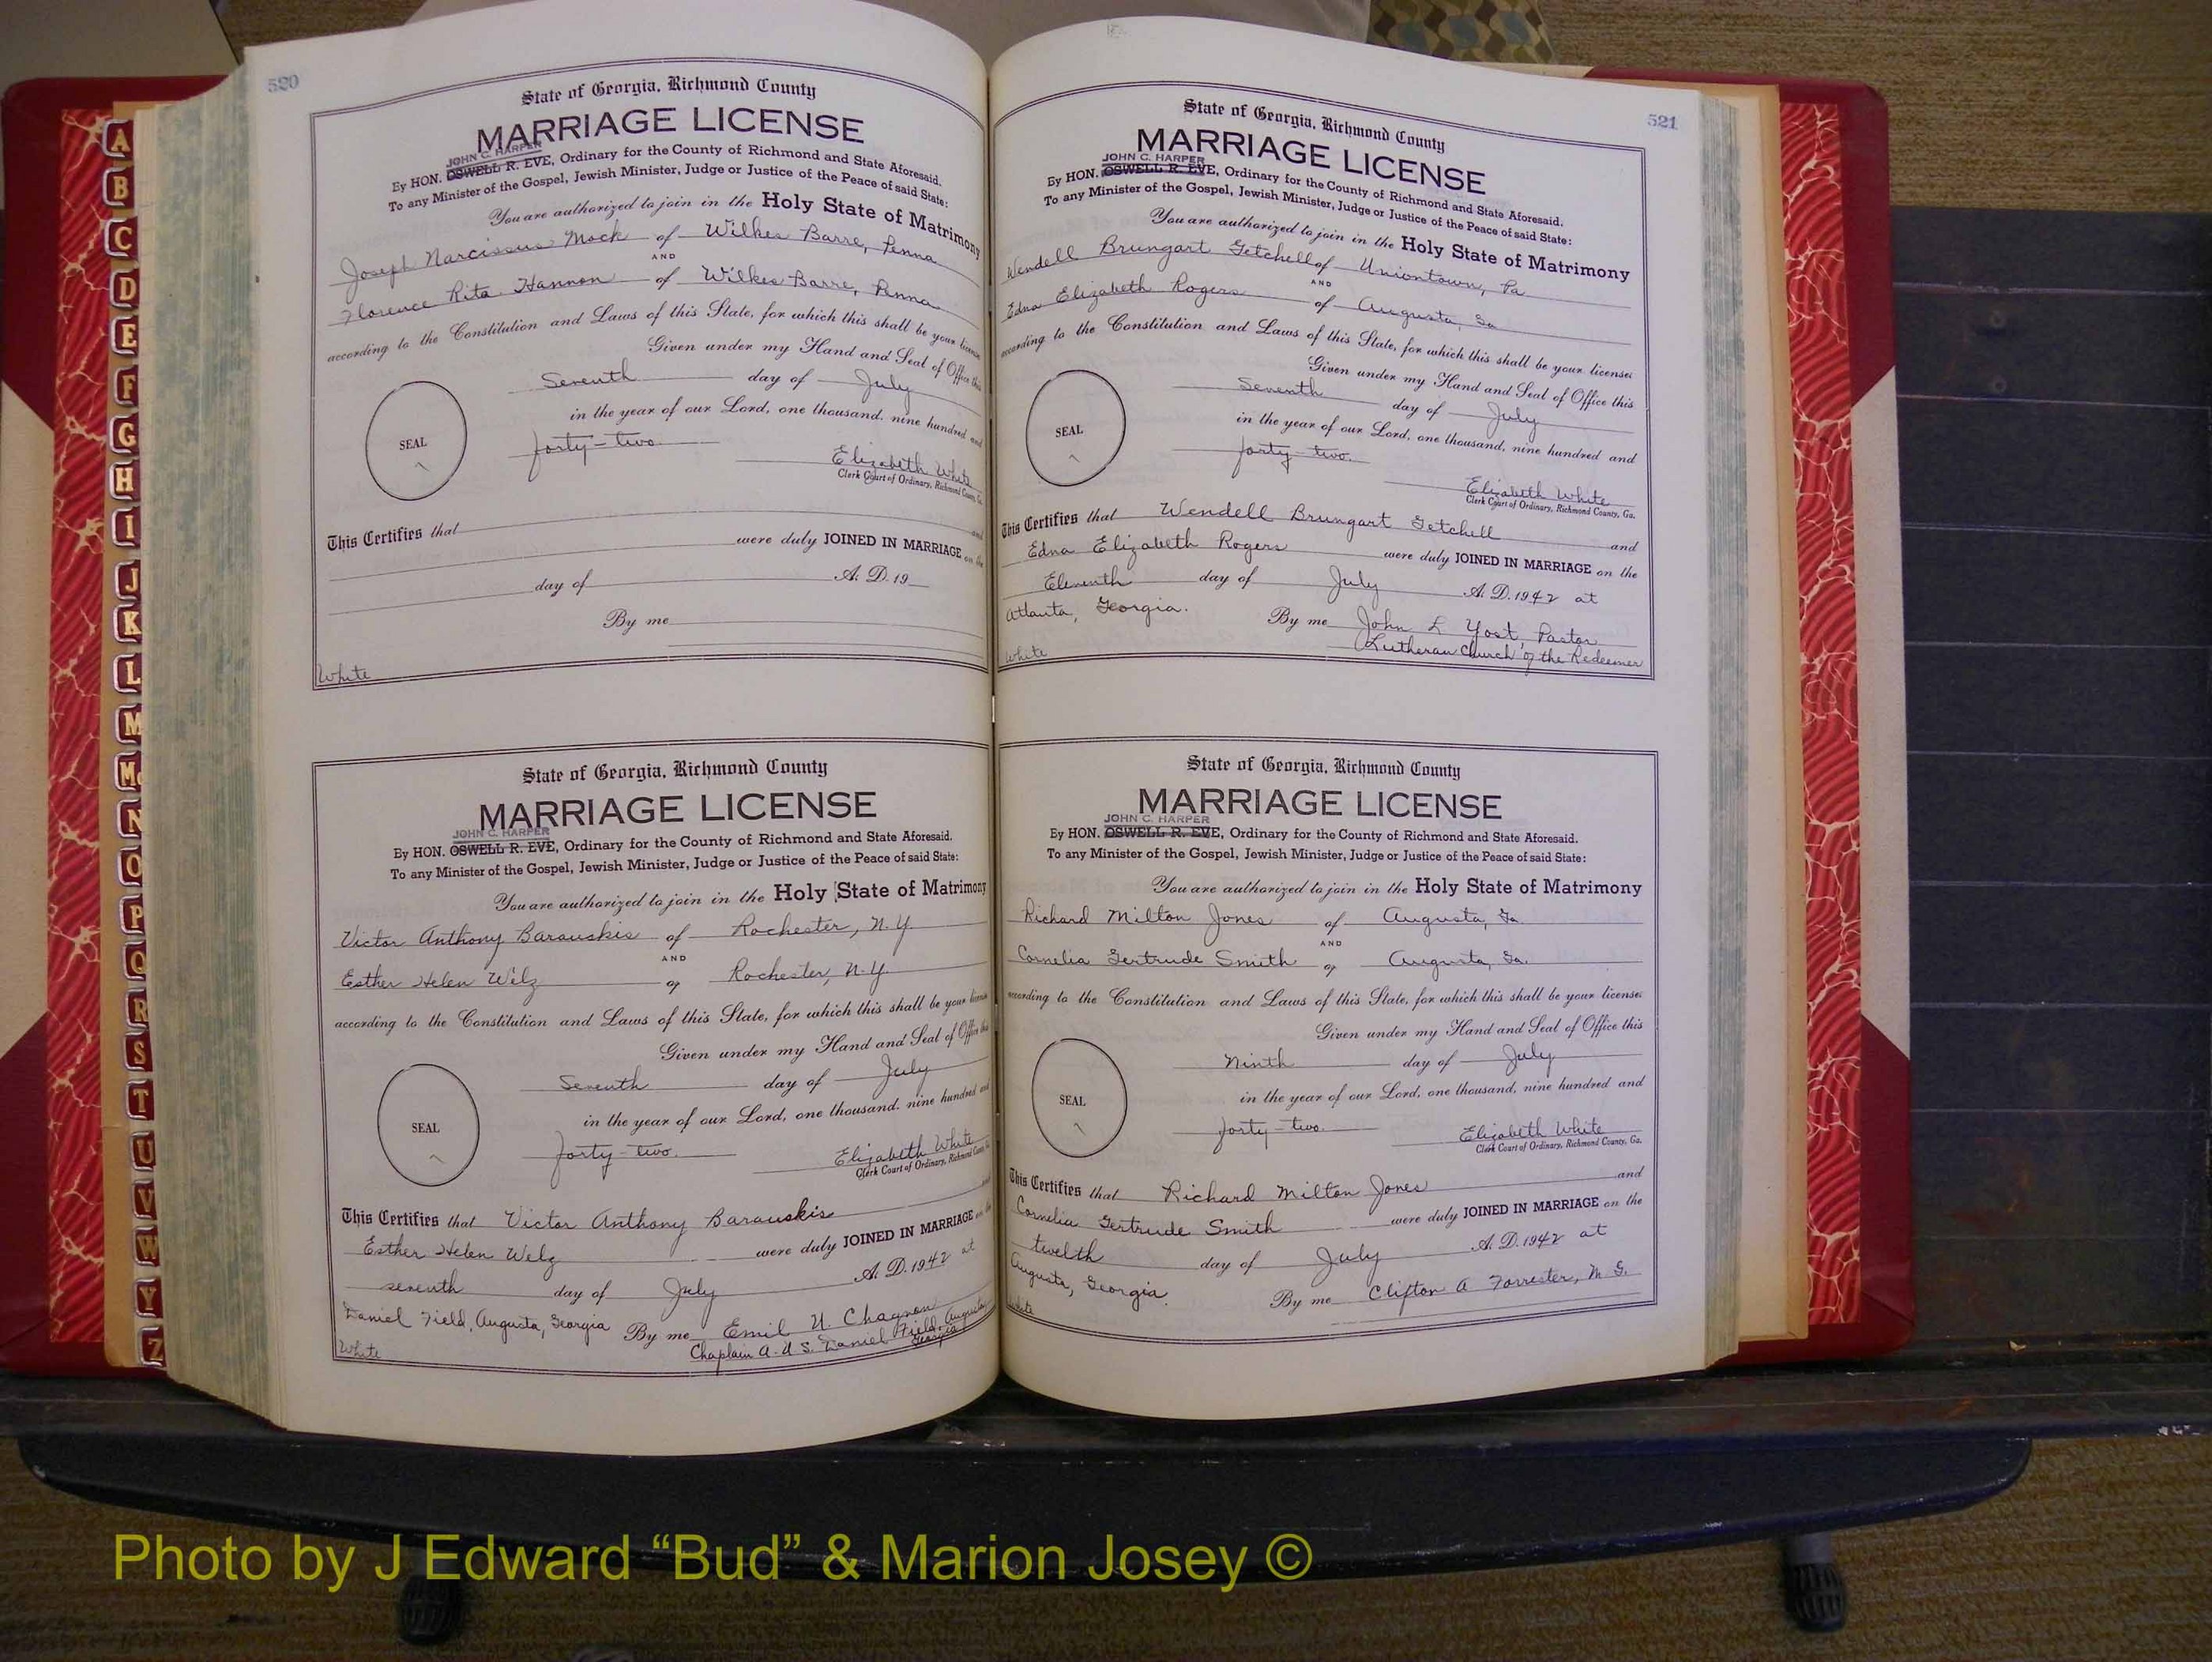 520
State of Georgia, Richmond County
MARRIAGE LICENSE
JOHN C. HARPER
By HON. OSWELL R. EVE, Ordinary for the County of Richmond and State Aforesaid.
To any Minister of the Gospel, Jewish Minister, Judge or Justice of the Peace of said State:
You are authorized to join in the Holy State of Matrimony
Joseph Narcissus Mock of Wilkes Barre, Penna
AND
Florence Rita Hannon of Wilkes Barre, Penna
according to the Constitution and Laws of this State, for which this shall be your license
Given under my Hand and Seal of Office this
Seventh day of July
in the year of our Lord, one thousand, nine hundred and
SEAL
forty-two.
Elizabeth White
Clerk Court of Ordinary, Richmond County, Ga.
This Certifies that and
were duly JOINED IN MARRIAGE on the
day of A. D. 19
By me
White
State of Georgia, Richmond County
MARRIAGE LICENSE
JOHN C. HARPER
By HON. OSWELL R. EVE, Ordinary for the County of Richmond and State Aforesaid.
To any Minister of the Gospel, Jewish Minister, Judge or Justice of the Peace of said State:
You are authorized to join in the Holy State of Matrimony
Victor Anthony Barauskis of Rochester, N.Y.
AND
Esther Helen Welz of Rochester, N.Y.
according to the Constitution and Laws of this State, for which this shall be your license
Given under my Hand and Seal of Office this
Seventh day of July
in the year of our Lord, one thousand, nine hundred and
SEAL
forty-two.
Elizabeth White
Clerk Court of Ordinary, Richmond County, Ga.
This Certifies that Victor Anthony Barauskis and
Esther Helen Welz were duly JOINED IN MARRIAGE on the
seventh day of July A. D. 1942 at
Daniel Field, Augusta, Georgia By me Emil U. Chagnon
Chaplain A.U.S. Daniel Field, Augusta
Georgia
White
521
State of Georgia, Richmond County
MARRIAGE LICENSE
JOHN C. HARPER
By HON. OSWELL R. EVE, Ordinary for the County of Richmond and State Aforesaid.
To any Minister of the Gospel, Jewish Minister, Judge or Justice of the Peace of said State:
You are authorized to join in the Holy State of Matrimony
Wendell Brungart Getchell of Uniontown, Pa.
AND
Edna Elizabeth Rogers of Augusta, Ga
according to the Constitution and Laws of this State, for which this shall be your license:
Given under my Hand and Seal of Office this
Seventh day of July
in the year of our Lord, one thousand, nine hundred and
SEAL
forty-two.
Elizabeth White
Clerk Court of Ordinary, Richmond County, Ga.
This Certifies that Wendell Brungart Getchell and
Edna Elizabeth Rogers were duly JOINED IN MARRIAGE on the
Eleventh day of July A. D. 1942 at
Atlanta, Georgia. By me John L Yost, Pastor
Lutheran Church of the Redeemer
White
State of Georgia, Richmond County
MARRIAGE LICENSE
JOHN C. HARPER
By HON. OSWELL R. EVE, Ordinary for the County of Richmond and State Aforesaid.
To any Minister of the Gospel, Jewish Minister, Judge or Justice of the Peace of said State:
You are authorized to join in the Holy State of Matrimony
Richard Milton Jones of Augusta, Ga.
AND
Cornelia Gertrude Smith of Augusta, Ga.
according to the Constitution and Laws of this State, for which this shall be your license:
Given under my Hand and Seal of Office this
Ninth day of July
in the year of our Lord, one thousand, nine hundred and
SEAL
forty-two.
Elizabeth White
Clerk Court of Ordinary, Richmond County, Ga.
This Certifies that Richard Milton Jones and
Cornelia Gertrude Smith were duly JOINED IN MARRIAGE on the
twelth day of July A. D. 1942 at
Augusta, Georgia. By me Clifton A Forrester, M G.
White
A
B
C
D
E
F
G
H
I
J
K
L
M
Mc
N
O
P
Q
R
S
T
U
V
W
Y
Z
Photo by J Edward “Bud” & Marion Josey ©